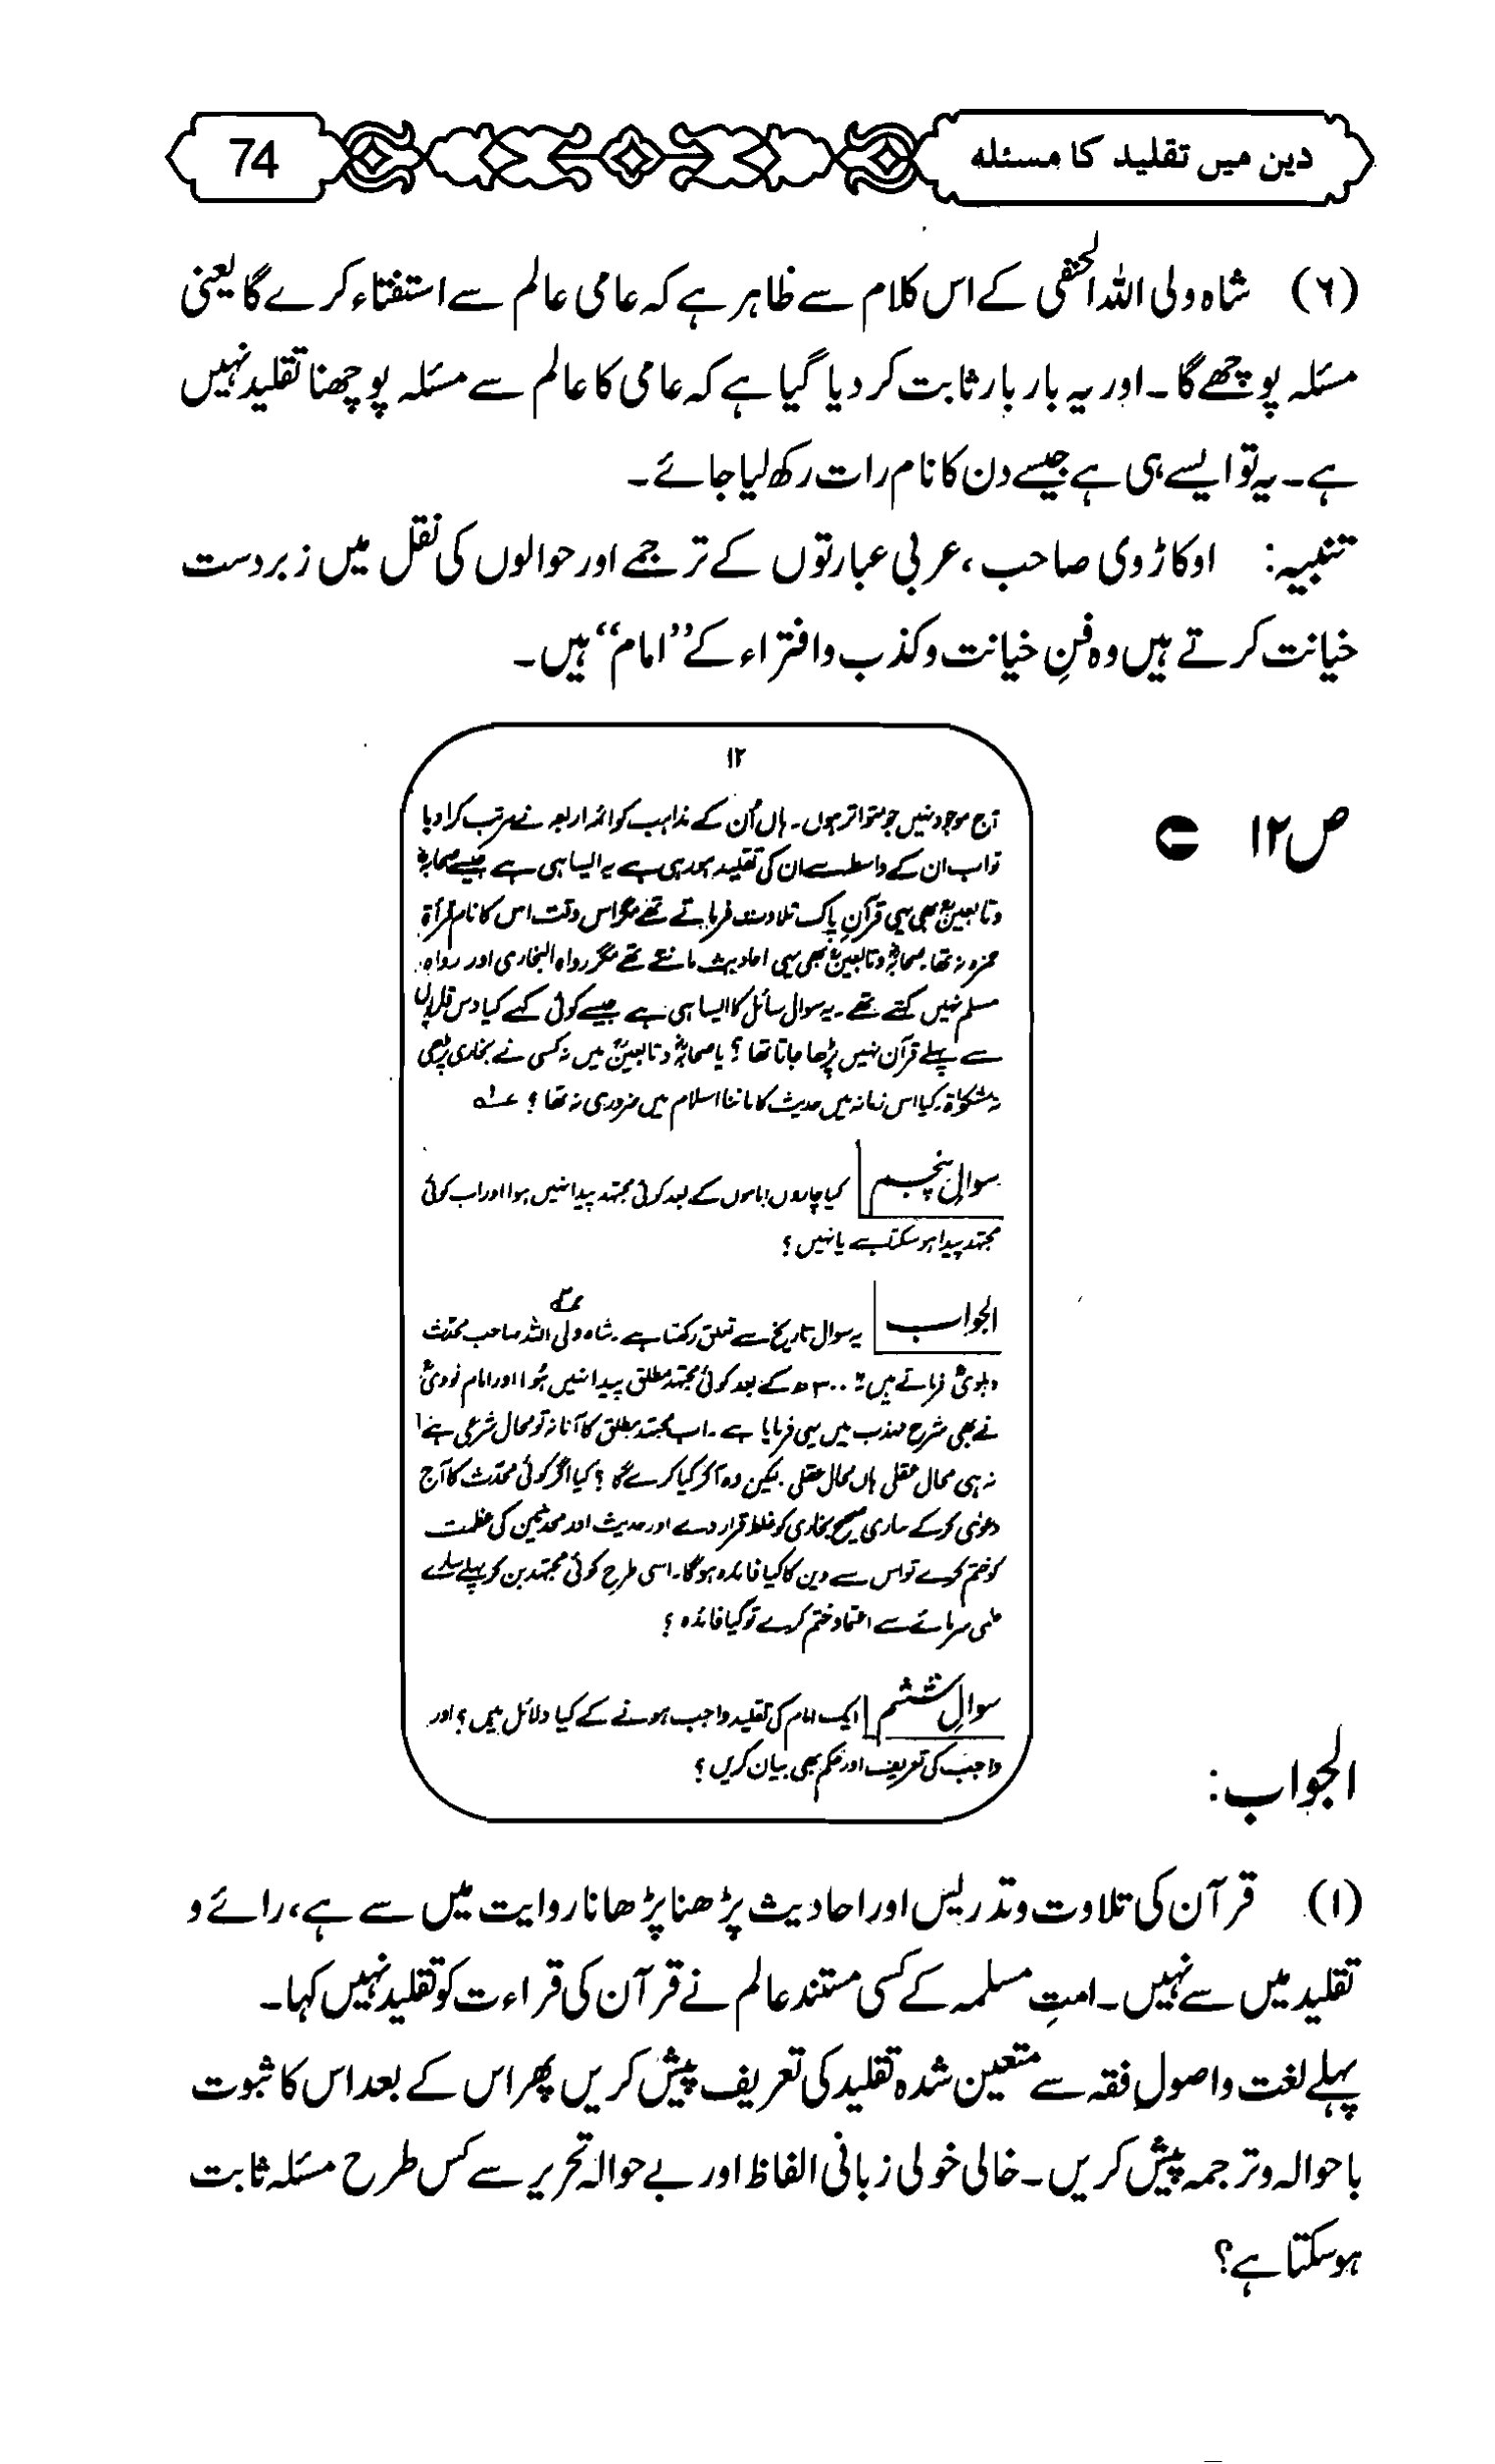 دین میں تقلید کا مسئلہ 74
(۶) شاہ ولی اللہ الحنفی کے اس کلام سے ظاہر ہے کہ عامی عالم سے استفتاء کرے گا یعنی
مسئلہ پوچھے گا۔ اور یہ بار بار ثابت کر دیا گیا ہے کہ عامی کا عالم سے مسئلہ پوچھنا تقلید نہیں
ہے۔ یہ تو ایسے ہی ہے جیسے دن کا نام رات رکھ لیا جائے۔
تنبیہ: اوکاڑوی صاحب، عربی عبارتوں کے ترجمے اور حوالوں کی نقل میں زبردست
خیانت کرتے ہیں وہ فنِ خیانت و کذب و افتراء کے ”امام“ ہیں۔
ص۱۲
۱۲
آج موجود نہیں جو متواتر ہوں۔ ہاں اُن کے مذاہب کو ائمہ اربعہ نے مرتب کرا دیا
تو اب ان کے واسطے سے ان کی تقلید ہو رہی ہے یہ ایسا ہی ہے جیسے صحابہؓ
و تابعینؒ بھی یہی قرآنِ پاک تلاوت فرماتے تھے مگر اس وقت اس کا نام قرأۃ
حمزہ نہ تھا۔ صحابہؓ و تابعینؒ بھی یہی احادیث مانتے تھے مگر رواہ البخاری اور رواہ
مسلم نہیں کہتے تھے۔ یہ سوال سائل کا ایسا ہی ہے جیسے کوئی کہے کیا دس قاریوں
سے پہلے قرآن نہیں پڑھا جاتا تھا؟ یا صحابہؓ و تابعینؒ میں نہ کسی نے بخاری پڑھی
نہ مشکوٰۃ۔ کیا اس زمانہ میں حدیث کا ماننا اسلام میں ضروری نہ تھا؟
سوالِ پنجم کیا چاروں اماموں کے بعد کوئی مجتہد پیدا نہیں ہوا اور اب کوئی
مجتہد پیدا ہو سکتا ہے یا نہیں؟
الجواب یہ سوال تاریخ سے تعلق رکھتا ہے۔ شاہ ولی اللہ صاحب محدث
دہلویؒ فرماتے ہیں: ۳۰۰ھ کے بعد کوئی مجتہد مطلق پیدا نہیں ہُوا اور امام نوویؒ
نے بھی شرح مہذب میں یہی فرمایا ہے۔ اب مجتہد مطلق کا آنا نہ تو محال شرعی ہے
نہ ہی محال عقلی ہاں محال عقلی۔ لیکن وہ آکر کیا کرے گا؟ کیا اگر کوئی محدّث کا آج
دعویٰ کرکے ساری صحیح بخاری کو غلط قرار دے اور حدیث اور محدثین کی عظمت
کو ختم کرے تو اس سے دین کا کیا فائدہ ہوگا۔ اسی طرح کوئی مجتہد بن کر پہلے سارے
علمی سرمائے سے اعتماد ختم کرے تو کیا فائدہ؟
سوالِ ششم ایک امام کی تقلید واجب ہونے کے کیا دلائل ہیں؟ اور
واجب کی تعریف اور حکم بھی بیان کریں؟
الجواب:
(۱) قرآن کی تلاوت و تدریس اور احادیث پڑھنا پڑھانا روایت میں سے ہے، رائے و
تقلید میں سے نہیں۔ امتِ مسلمہ کے کسی مستند عالم نے قرآن کی قراءت کو تقلید نہیں کہا۔
پہلے لغت و اصولِ فقہ سے متعین شدہ تقلید کی تعریف پیش کریں پھر اس کے بعد اس کا ثبوت
باحوالہ و ترجمہ پیش کریں۔ خالی خولی زبانی الفاظ اور بے حوالہ تحریر سے کس طرح مسئلہ ثابت
ہو سکتا ہے؟